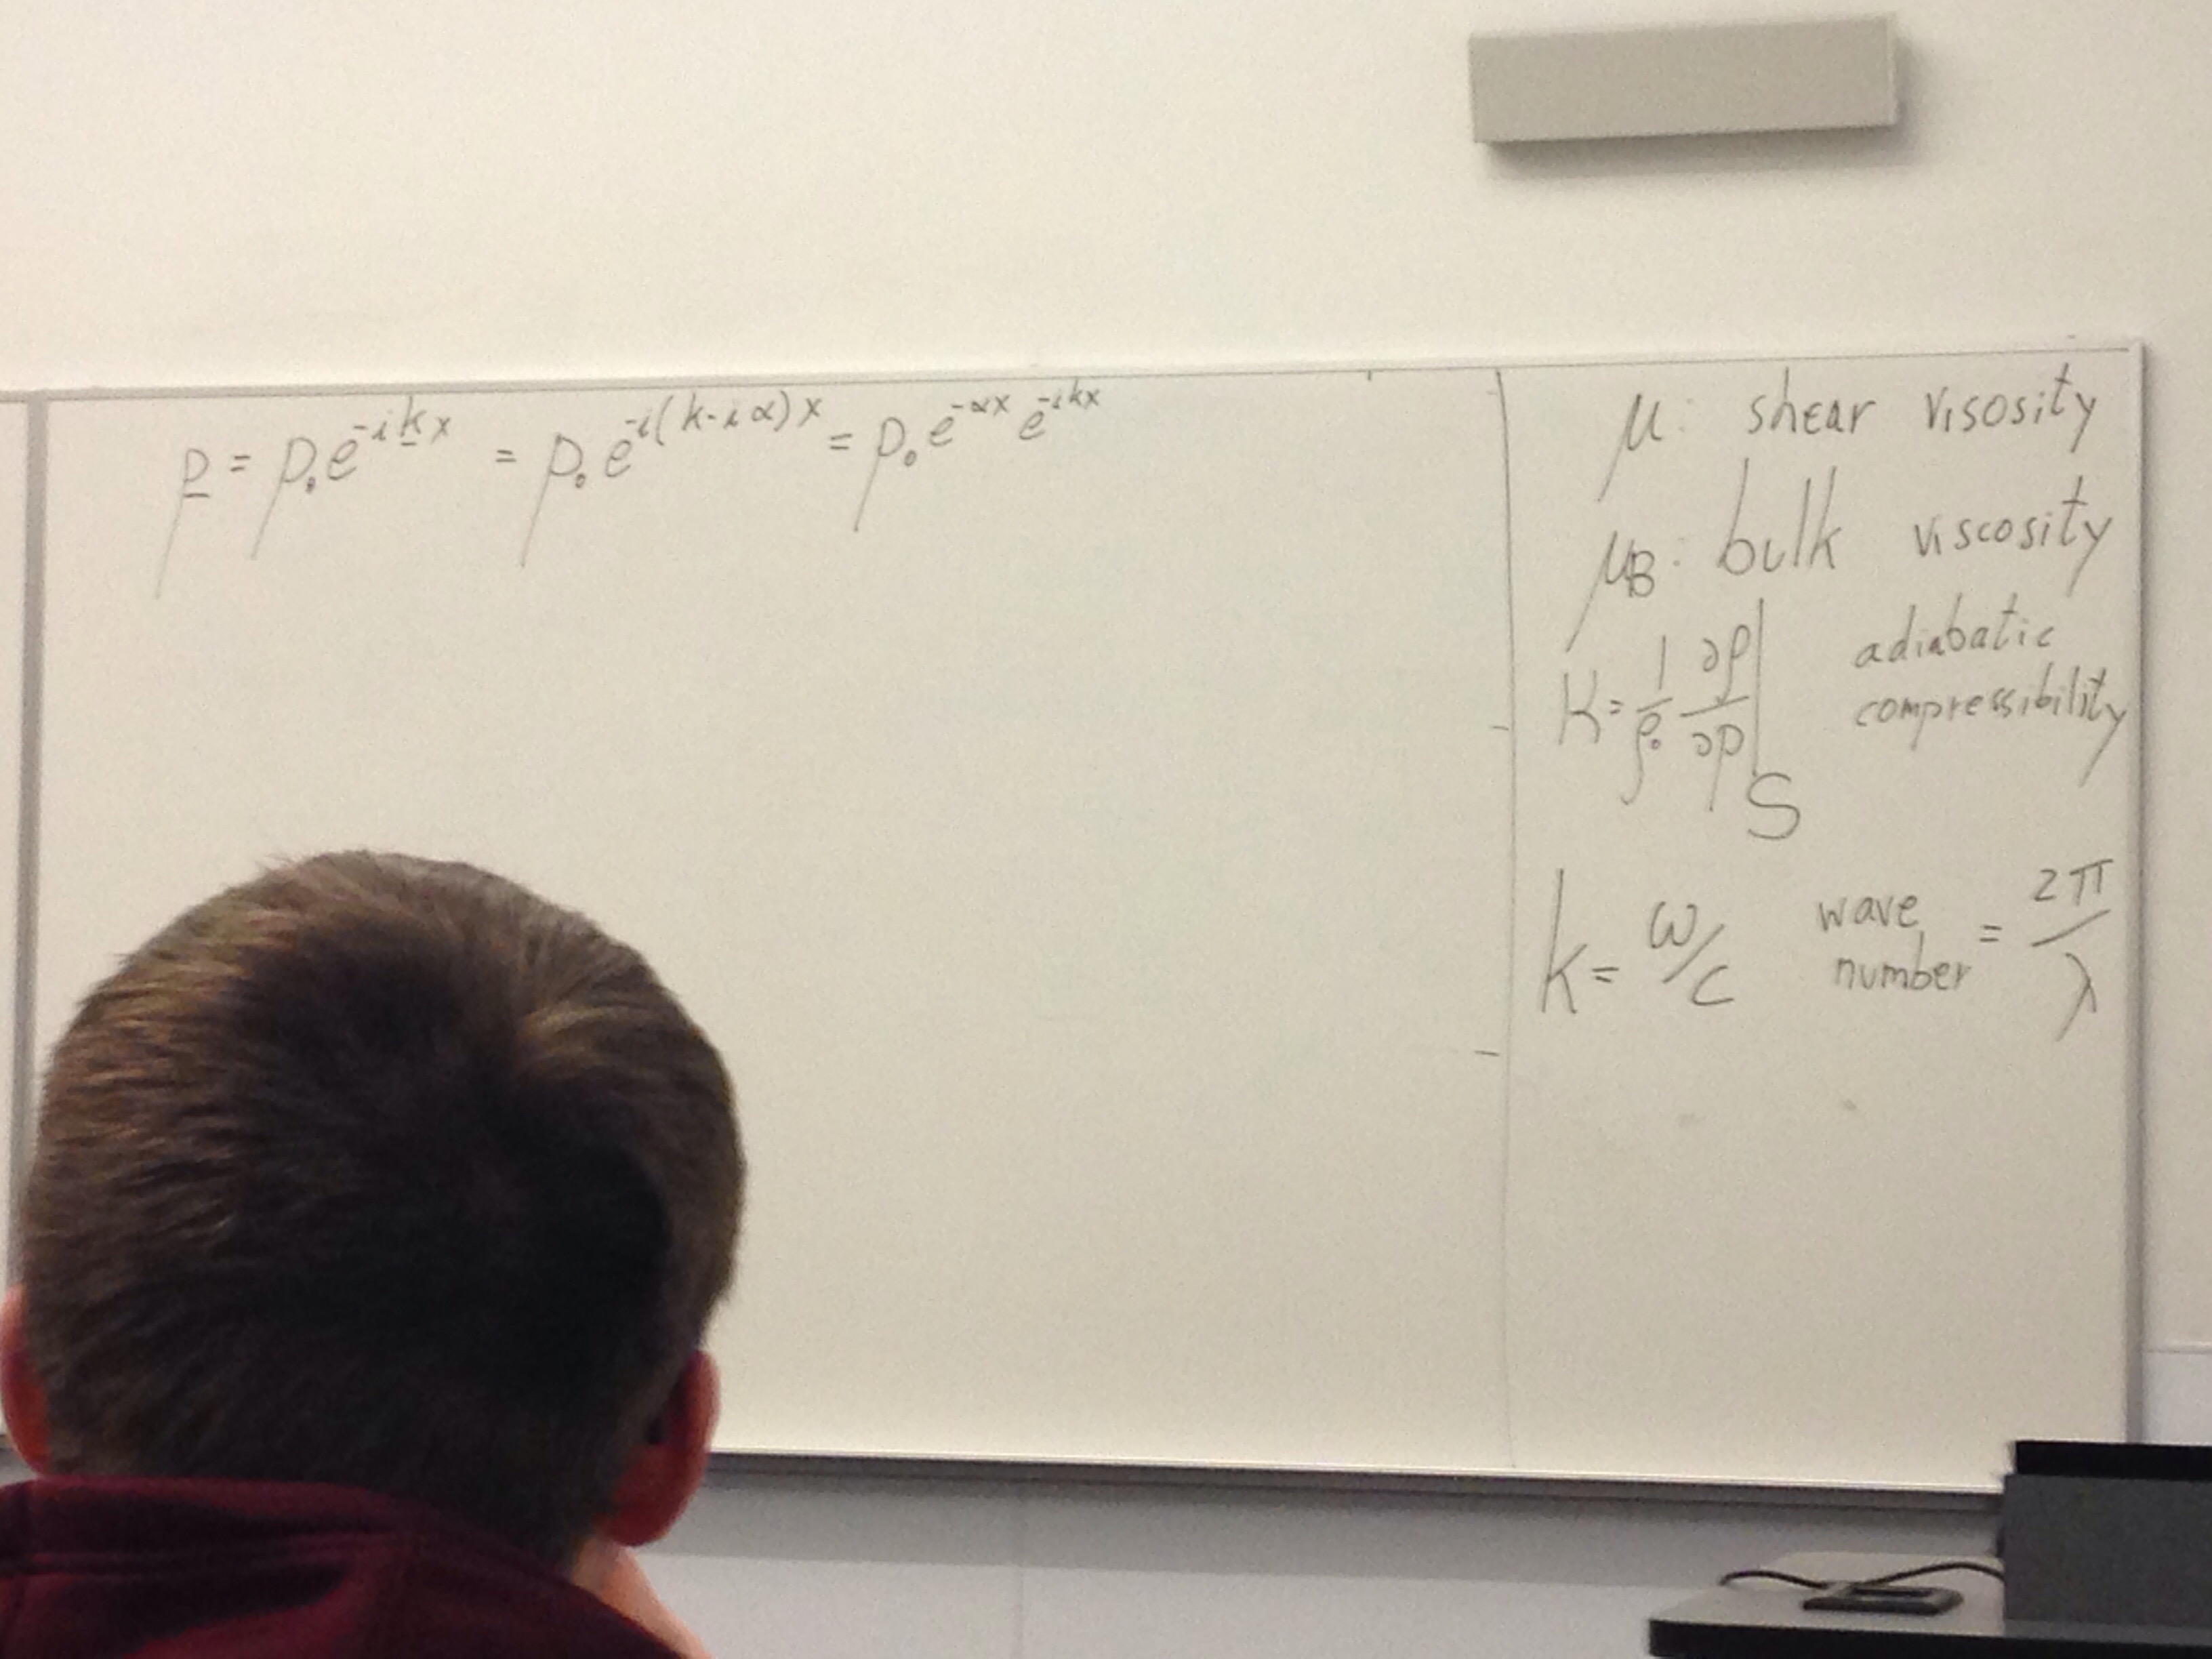 p = p₀e^{-ikx} = p₀e^{-i(k-iα)x} = p₀e^{-αx} e^{-ikx}
μ: shear visosity
μB: bulk viscosity
K = 1/ρ₀ ∂ρ/∂p |S adiabatic
compressibility
k = ω/c wave number = 2π/λ